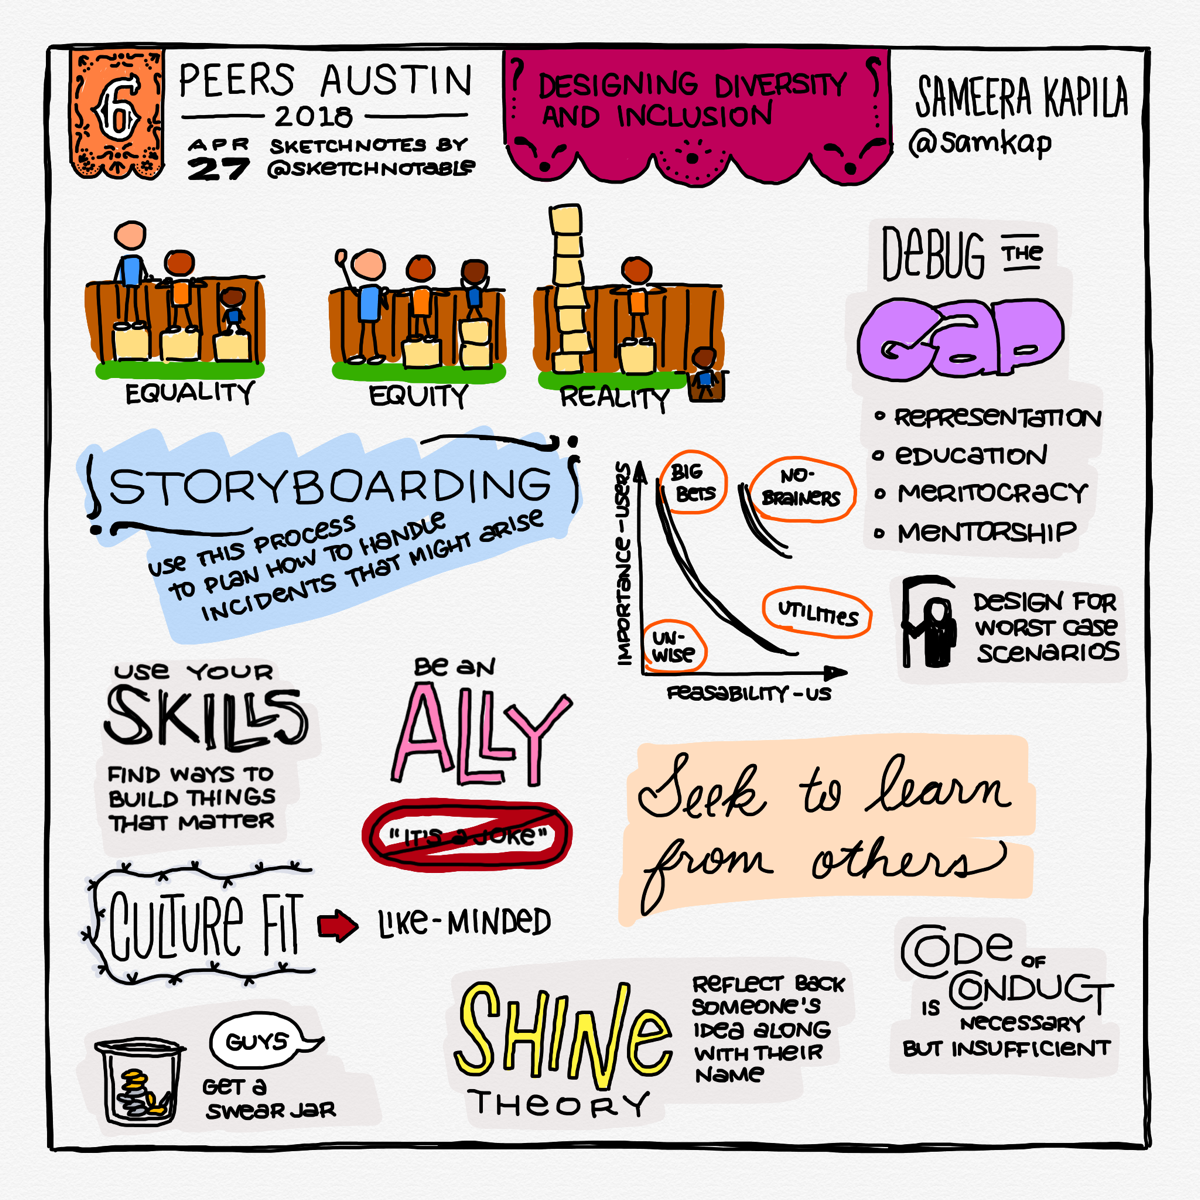 6
PEERS AUSTIN
2018
APR
27
SKETCHNOTES BY
@SKETCHNOTABLE
DESIGNING DIVERSITY
AND INCLUSION
SAMEERA KAPILA
@samkap
EQUALITY
EQUITY
REALITY
DEBUG THE
GAP
• REPRESENTATION
• EDUCATION
• MERITOCRACY
• MENTORSHIP
STORYBOARDING
USE THIS PROCESS
TO PLAN HOW TO HANDLE
INCIDENTS THAT MIGHT ARISE
IMPORTANCE-USERS
BIG
BETS
NO-
BRAINERS
UTILITIES
UN-
WISE
FEASABILITY-US
DESIGN FOR
WORST CASE
SCENARIOS
USE YOUR
SKILLS
FIND WAYS TO
BUILD THINGS
THAT MATTER
BE AN
ALLY
"IT'S A JOKE"
Seek to learn
from others
CULTURE FIT
LIKE-MINDED
GUYS
GET A
SWEAR JAR
SHINE
THEORY
REFLECT BACK
SOMEONE'S
IDEA ALONG
WITH THEIR
NAME
CODE OF
CONDUCT
IS NECESSARY
BUT INSUFFICIENT